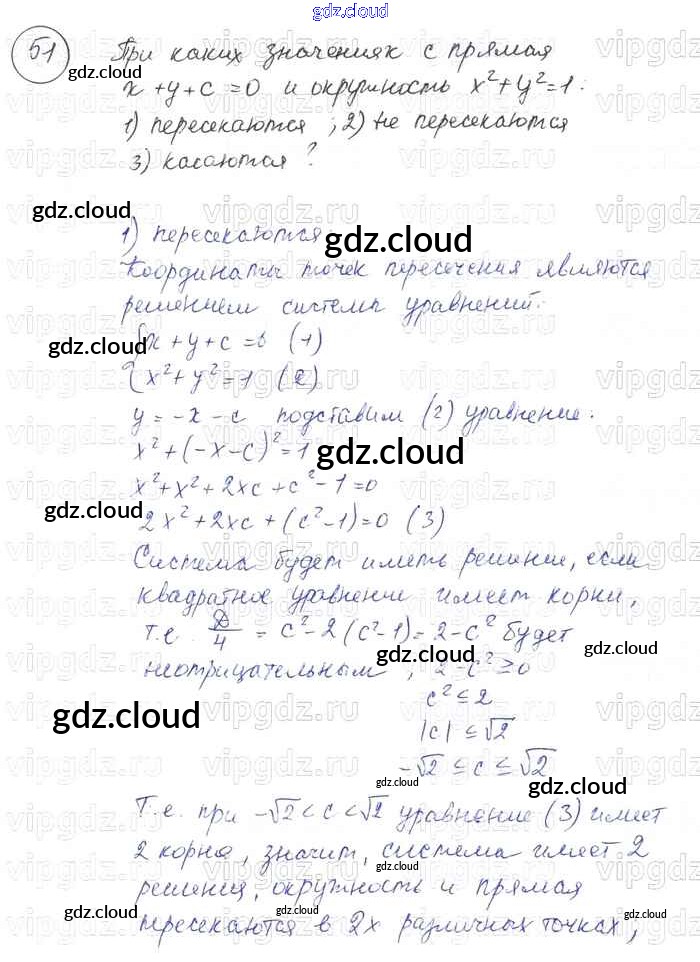 gdz.cloud
51
При каких значениях c прямая
x + y + c = 0 и окружность x² + y² = 1 :
1) пересекаются ; 2) не пересекаются
3) касаются ?
1) пересекаются.
Координаты точек пересечения являются
решением системы уравнений:
{ x + y + c = 0 (1)
{ x² + y² = 1 (2)
y = -x - c подставим (2) уравнение.
x² + (-x - c)² = 1
x² + x² + 2xc + c² - 1 = 0
2x² + 2xc + (c² - 1) = 0 (3)
Система будет иметь решение, если
квадратное уравнение имеет корни,
т.е. D/4 = c² - 2(c² - 1) = 2 - c² будет
неотрицательным , 2 - c² ≥ 0
c² ≤ 2
|c| ≤ √2
-√2 ≤ c ≤ √2
Т.е. при -√2 < c < √2 уравнение (3) имеет
2 корня, значит, система имеет 2
решения, окружность и прямая
пересекаются в 2х различных точках,